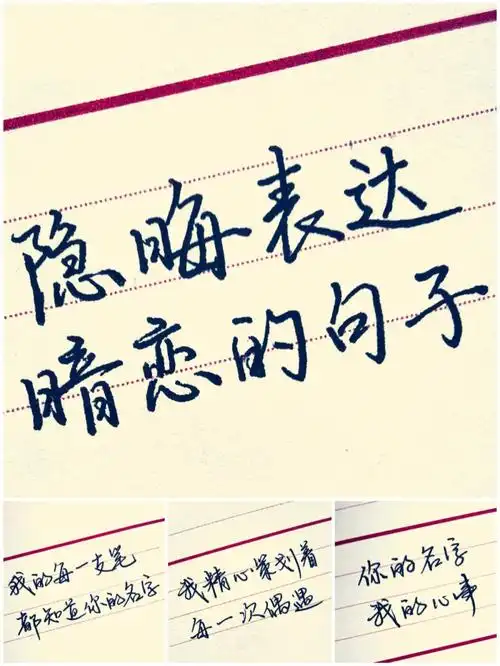 隐晦表达
暗恋的句子
我的每一支笔
都知道你的名字
我精心策划着
每一次偶遇
你的名字
我的心事